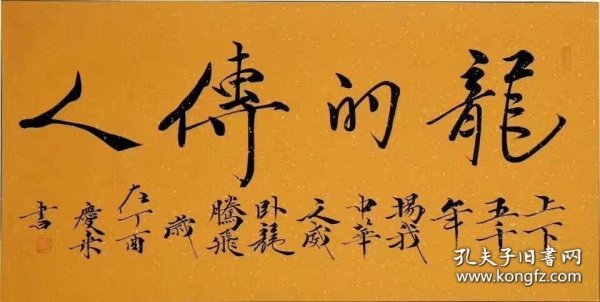 龍的傳人
上下
五千
年
揚我
中華
之威
卧龍
騰飛
歲
在丁酉
慶来
書
孔夫子旧书网
www.kongfz.com